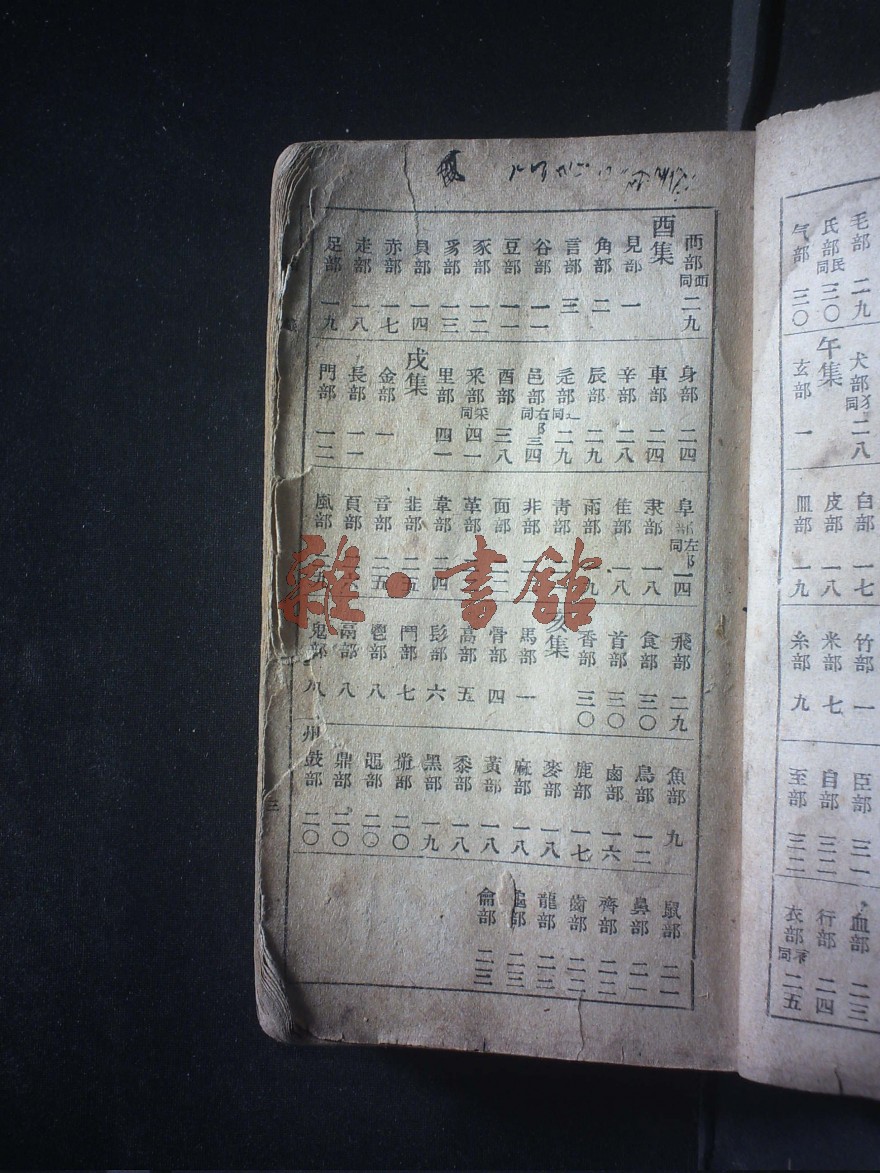 毛部 二九
氏部民同 三〇
气部 三〇
犬部犭同 二八
午集
玄部 一
白部 一七
皮部 一八
皿部 一九
竹部 一
米部 七
糸部 九
臣部 三一
自部 三二
至部 三二
血部 二三
行部 二四
衣部衤同 二五
襾部西同 二九
酉集
見部 一
角部 二
言部 三
谷部 一一
豆部 一一
豕部 一二
豸部 一三
貝部 一四
赤部 一七
走部 一八
足部 一九
身部 二四
車部 二四
辛部 二八
辰部 二九
辵部辶同 二九
邑部右阝同 三四
酉部 三八
釆部采同 四一
里部 四一
戌集
金部 一
長部 一一
門部 一二
阜部左阝同 一四
隶部 一八
隹部 一八
雨部
靑部
非部
面部
革部
韋部 二四
韭部 二五
音部 二五
頁部
風部
飛部 二九
食部 三〇
首部 三〇
香部 三〇
亥集
馬部 一
骨部 四
高部 五
髟部 六
鬥部 七
鬯部 八
鬲部 八
鬼部 八
魚部 九
鳥部 一二
鹵部 一六
鹿部 一七
麥部 一八
麻部 一八
黃部 一八
黍部 一八
黑部 一九
黹部 二〇
黽部 二〇
鼎部 二〇
鼓部 二〇
鼠部 二一
鼻部 二一
齊部 二二
齒部 二二
龍部 二三
龜部 二三
龠部 二三
三
雜·書館